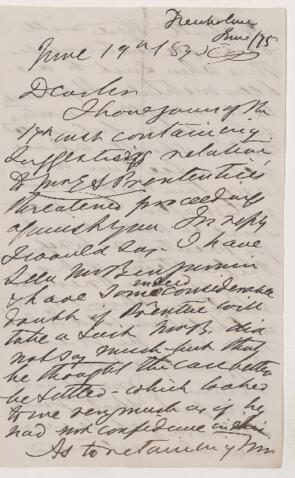 Trenholm
June /75
June 19th / 75
Dear Sir
I have yours of the
19th inst containing
suggestions in relation
to Prentice's
threatened proceedings
against you. In reply
I would say I have
seen Mr Benjamin
& have some considerable
indeed
doubt if Prentice will
take a suit Mr B. did
not say much but that
he thought the case better
be settled - which looked
to me very much as if he
had not confidence in
As to retaining him